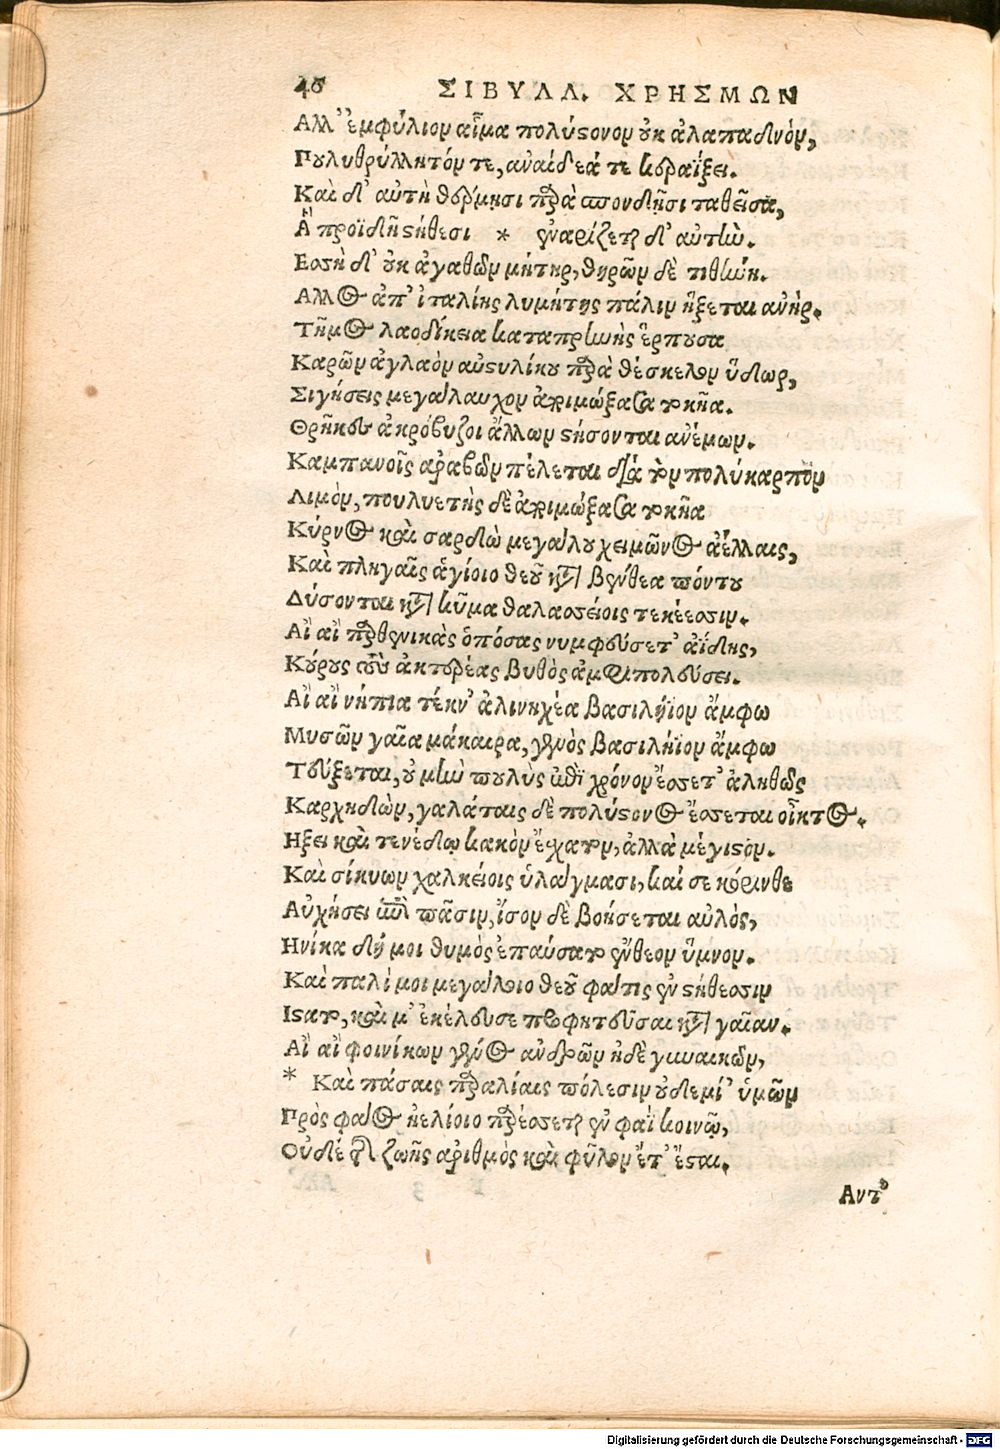 40 ΣΙΒΥΛΛ. ΧΡΗΣΜΩΝ
Αλλ' ἐμφύλιον αἷμα πολύστονον οὐκ ἀλαπαδινὸν,
Πουλυθρύλλητόν τε, ἀναιδέά τε κεραΐξει.
Καὶ δ' αὐτὴ θερμῇσι παρὰ σπονδῇσι ταθεῖσα,
Ἃ προϊδῇ στήθεσι * ἐναρίζεται δ' αὐτὴν.
Εσσῃ δ' οὐκ ἀγαθῶν μήτηρ, θηρῶν δὲ τιθήνη.
Αλλος ἀπ' ἰταλίης λυμήτης πάλιν ἥξεται ἀνὴρ.
Τῆμος λαοδίκεια καταπρηνὴς ἔρπουσα
Καρῶν ἀγλαὸν αὐστυλίκου παρὰ θέσκελον ὕδωρ,
Σιγήσεις μεγάλαυχον ἀποιμώξασα τοκῆα.
Θρῆκες ἀκρόβυζοι ἄλλων στήσονται ἀνέμων.
Καμπανοῖς ἄραβων πέλεται διὰ τὸν πολύκαρπον
Λιμὸν, πουλυετὴς δὲ ἀποιμώξασα τοκῆα
Κύρνος καὶ σαρδὼ μεγάλου χειμῶνος ἀέλλαις,
Καὶ πληγαῖς ἁγίοιο θεοῦ κατὰ βένθεα πόντου
Δύσονται κατὰ κῦμα θαλασσείοις τεκέεσσιν.
Αἲ αἲ παρθενικὰς ὁπόσας νυμφεύσετ' ἀΐδης,
Κούρους σὺν ἀκτερέας βυθὸς ἀμφιπολεύσει.
Αἲ αἲ νήπια τέκν' ἁλινηχέα βασιλήϊον ἄμφω
Μυσῶν γαῖα μάκαιρα, γένος βασιλήϊον ἄμφω
Τεύξεται, οὐ μὴν πουλὺς ἐπὶ χρόνον ἔσσετ' ἀληθῶς
Καρχηδὼν, γαλάταις δὲ πολύστονος ἔσσεται οἶκτος.
Ηξει καὶ τενέδῳ κακὸν ἔσχατον, ἀλλὰ μέγιστον.
Καὶ σίκυων χαλκείοις ὑλάγμασι, καί σε κόρινθε
Αὐχήσει ἐπὶ πᾶσιν, ἴσον δὲ βοήσεται αὐλὸς,
Ηνίκα δή μοι θυμὸς ἐπαύσατο ἔνθεον ὕμνον.
Καὶ πάλι μοι μεγάλοιο θεοῦ φάτις ἐν στήθεσσιν
Ιστατο, καὶ μ' ἐκέλευσε προφητεῦσαι κατὰ γαῖαν.
Αἲ αἲ φοινίκων γένος ἀνδρῶν ἠδὲ γυναικῶν,
* Καὶ πάσαις παραλίαις πόλεσιν οὐδεμί' ὑμῶν
Πρὸς φάος ἠελίοιο παρέσσεται ἐν φάϊ κοινῷ,
Οὐδέ ἔτι ζωῆς ἀριθμὸς καὶ φῦλον ἔτ' ἔσται.
Αντ'
Digitalisierung gefördert durch die Deutsche Forschungsgemeinschaft - DFG